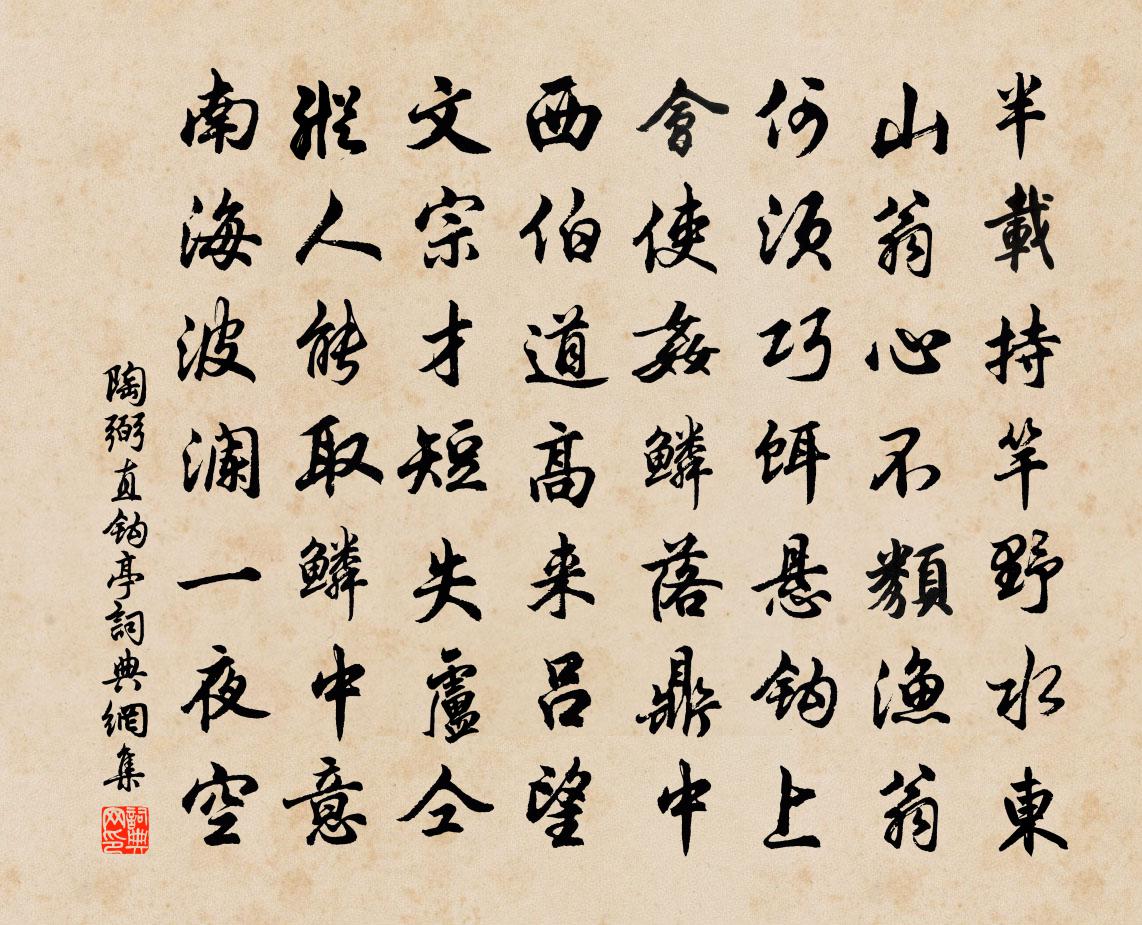 半載持竿野水東
山翁心不類漁翁
何須巧餌懸鈎上
會使姦鱗落鼎中
西伯道高来呂望
文宗才短失盧仝
縱人能取鱗中意
南海波瀾一夜空
陶弼直鈎亭詞典網集
詞典网印